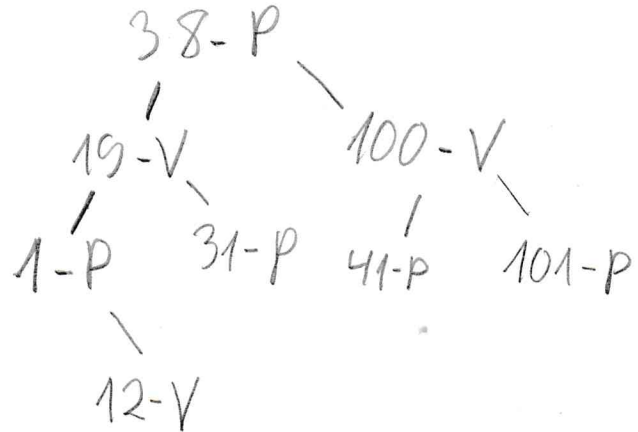 38-P
19-V 100-V
1-P 31-P 41-P 101-P
12-V